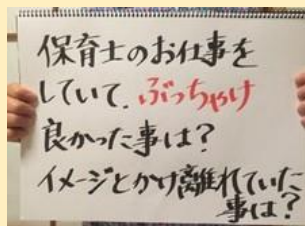 保育士のお仕事を
していて、ぶっちゃけ
良かった事は？
イメージとかけ離れていた
事は？